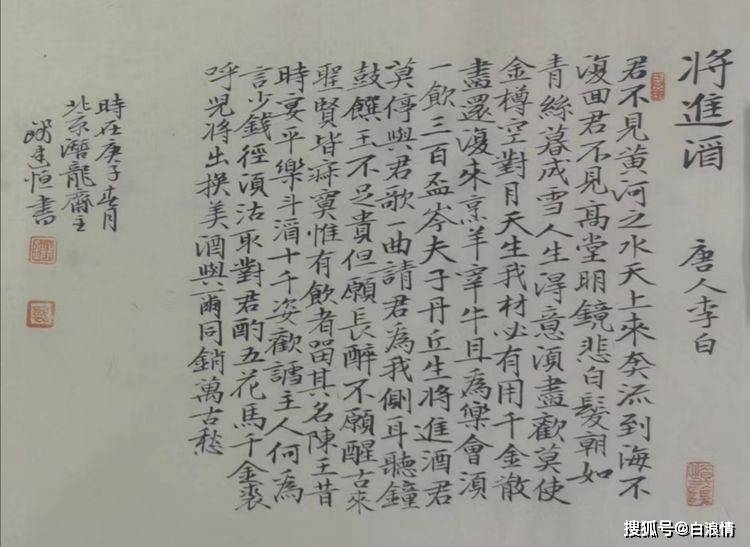 将進酒
唐人李白
君不見黃河之水天上來奔流到海不
復回君不見高堂明鏡悲白髮朝如
青絲暮成雪人生得意須盡歡莫使
金樽空對月天生我材必有用千金散
盡還復來烹羊宰牛且為樂會須
一飲三百盃岑夫子丹丘生将進酒君
莫停與君歌一曲請君為我側耳聽鐘
鼓饌玉不足貴但願長醉不願醒古來
聖賢皆寂寞惟有飲者留其名陳王昔
時宴平樂斗酒十千姿歡謔主人何為
言少錢徑須沽取對君酌五花馬千金裘
呼児将出換美酒與爾同銷萬古愁
時在庚子春月
北京潛龍齋主
建恒書
搜狐号@白浪情